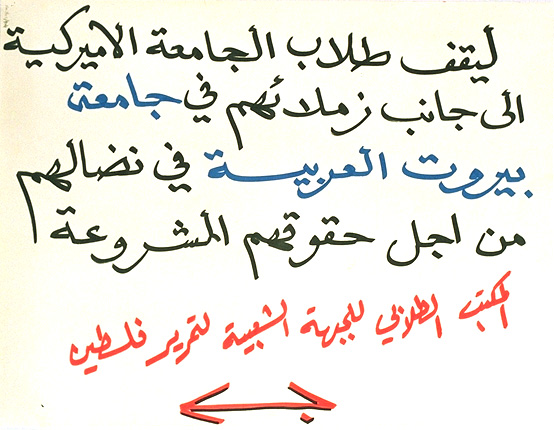 ليقف طلاب الجامعة الاميركية
الى جانب زملائهم في جامعة
بيروت العربية في نضالهم
من اجل حقوقهم المشروعة
المكتب الطلابي للجبهة الشعبية لتحرير فلسطين